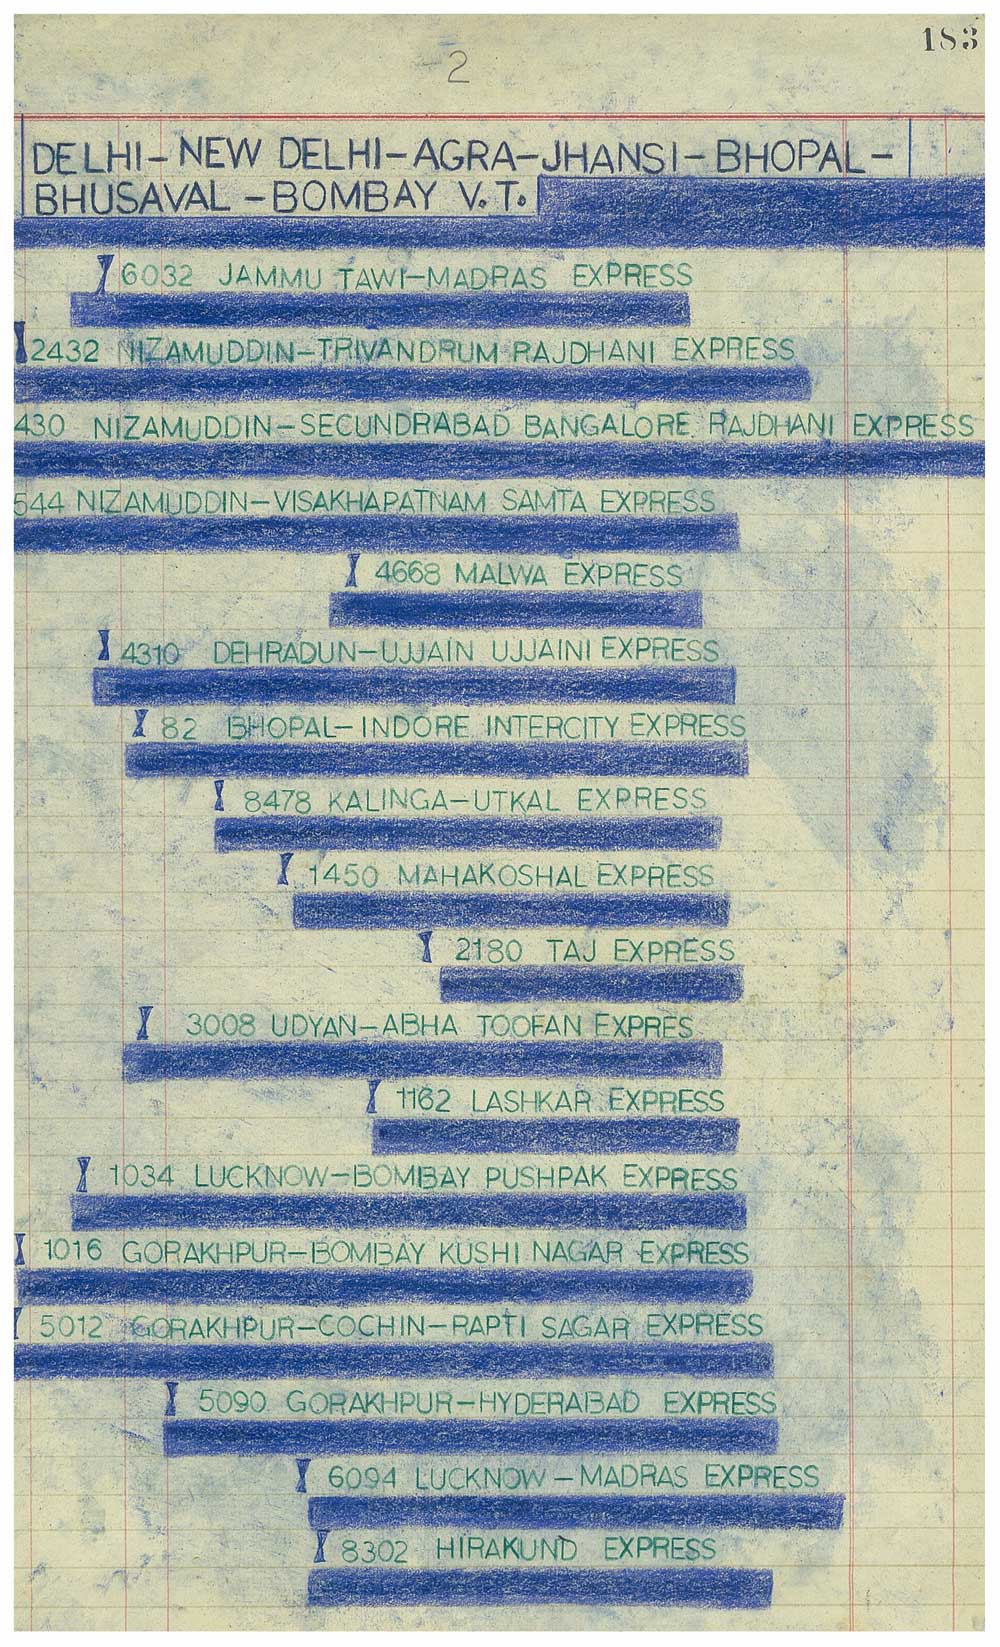 183
2
DELHI-NEW DELHI-AGRA-JHANSI-BHOPAL-
BHUSAVAL-BOMBAY V.T.
6032 JAMMU TAWI-MADRAS EXPRESS
2432 NIZAMUDDIN-TRIVANDRUM RAJDHANI EXPRESS
430 NIZAMUDDIN-SECUNDRABAD BANGALORE RAJDHANI EXPRESS
544 NIZAMUDDIN-VISAKHAPATNAM SAMTA EXPRESS
4668 MALWA EXPRESS
4310 DEHRADUN-UJJAIN UJJAINI EXPRESS
82 BHOPAL-INDORE INTERCITY EXPRESS
8478 KALINGA-UTKAL EXPRESS
1450 MAHAKOSHAL EXPRESS
2180 TAJ EXPRESS
3008 UDYAN-ABHA TOOFAN EXPRES
1162 LASHKAR EXPRESS
1034 LUCKNOW-BOMBAY PUSHPAK EXPRESS
1016 GORAKHPUR-BOMBAY KUSHI NAGAR EXPRESS
5012 GORAKHPUR-COCHIN-RAPTI SAGAR EXPRESS
5090 GORAKHPUR-HYDERABAD EXPRESS
6094 LUCKNOW-MADRAS EXPRESS
8302 HIRAKUND EXPRESS